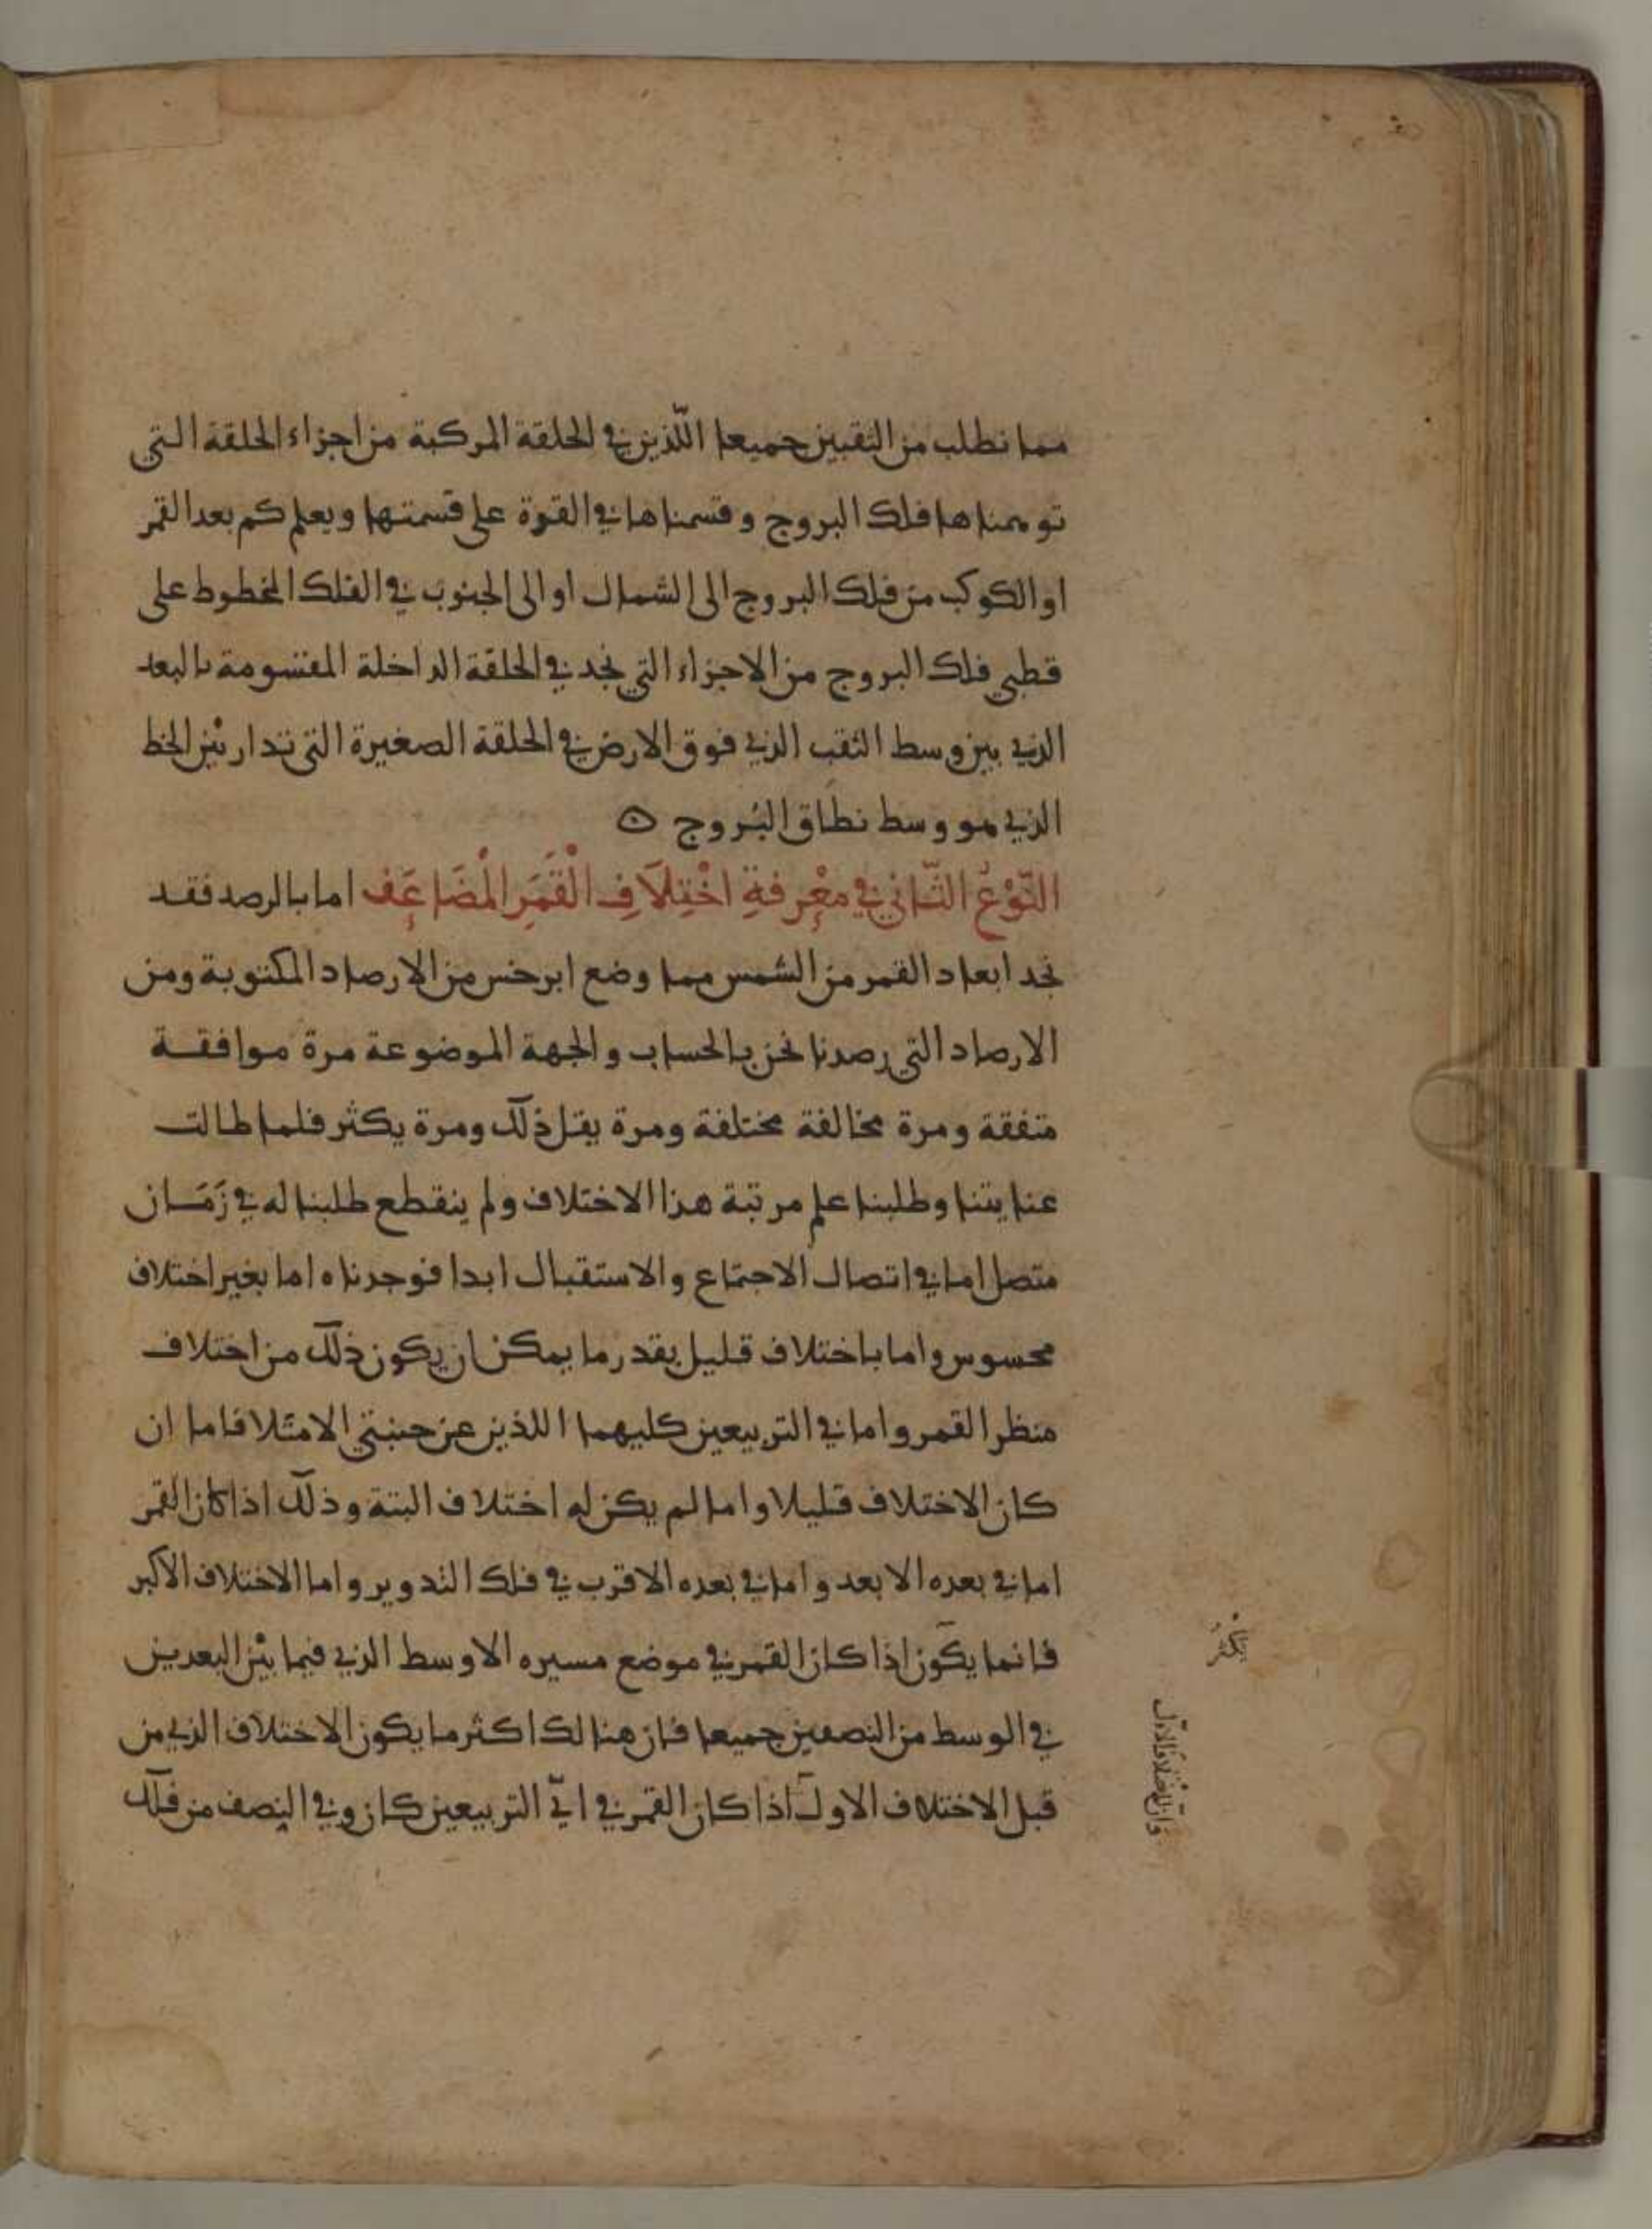 مما نطلب من الثقبين جميعا اللّذين في الحلقة المركبة من اجزاء الحلقة التي
توهمناها فلك البروج وقسمناها في القوة على قسمتها ويعلم كم بعد القمر
او الكوكب من فلك البروج الى الشمال او الى الجنوب في الفلك المخطوط على
قطبي فلك البروج من الاجزاء التي نجد في الحلقة الداخلة المقسومة بالبعد
الذي بين وسط الثقب الذي فوق الارض في الحلقة الصغيرة التي تدار بين الخط
الذي هو وسط نطاق البروج
النَّوْعُ الثَّاني في معْرِفةِ اخْتِلَافِ الْقَمَرِ الْمُضَاعَف اما بالرصد فقد
نجد ابعاد القمر من الشمس مما وضع ابرخس من الارصاد المكتوبة ومن
الارصاد التي رصدنا نحن بالحساب والجهة الموضوعة مرة موافقة
متفقة ومرة مخالفة مختلفة ومرة يقل ذلك ومرة يكثر فلما طالت
عنايتنا وطلبنا علم مرتبة هذا الاختلاف ولم ينقطع طلبنا له في زَمَان
متصل اما في اتصال الاجتماع والاستقبال ابدا فوجدناه اما بغير اختلاف
محسوس واما باختلاف قليل بقدر ما يمكن ان يكون ذلك من اختلاف
منظر القمر واما في التربيعين كليهما اللذين عن جنبتي الامتلا فاما ان
كان الاختلاف قليلا واما لم يكن له اختلاف البتة وذلك اذا كان القمر
اما في بعده الابعد واما في بعده الاقرب في فلك التدوير واما الاختلاف الاكبر
فانما يكون اذا كان القمر في موضع مسيره الاوسط الذي فيما بين البعدين
في الوسط من النصفين جميعا فان هنالك اكثر ما يكون الاختلاف الذي من
قبل الاختلاف الاول اذا كان القمر في ايّ التربيعين كان وفي النصف من فلك
يكثر